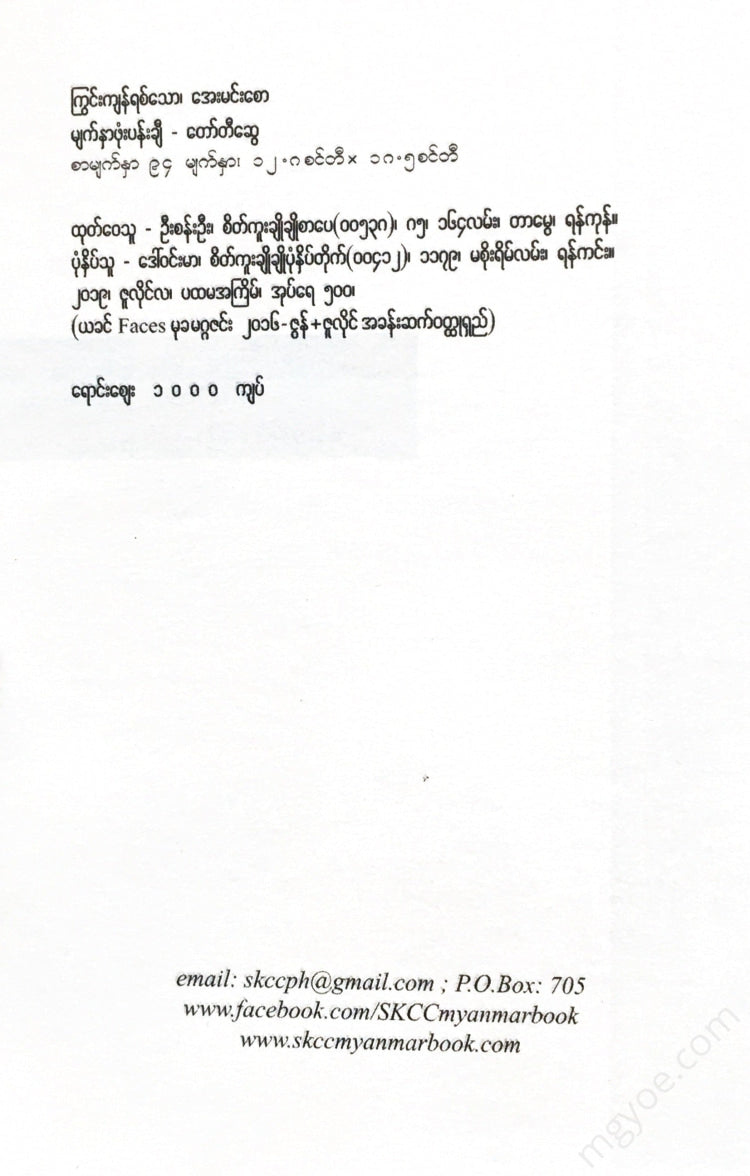 ကြွင်းကျန်ရစ်သော၊ အေးမင်းစော
မျက်နှာဖုံးပန်းချီ - တော်တီဆွေ
စာမျက်နှာ ၉၄ မျက်နှာ၊ ၁၂.၈စင်တီ× ၁၈.၅စင်တီ
ထုတ်ဝေသူ - ဦးစန်းဦး၊ စိတ်ကူးချိုချိုစာပေ(၀၀၅၃၈)၊ ၈၅၊ ၁၆၄လမ်း၊ တာမွေ၊ ရန်ကုန်။
ပုံနှိပ်သူ - ဒေါ်ဝင်းမာ၊ စိတ်ကူးချိုချိုပုံနှိပ်တိုက်(၀၀၄၁၂)၊ ၁၁၇၉၊ မစိုးရိမ်လမ်း၊ ရန်ကင်း။
၂၀၁၉၊ ဇူလိုင်လ၊ ပထမအကြိမ်၊ အုပ်ရေ ၅၀၀၊
(ယခင် Faces မုခမဂ္ဂဇင်း ၂၀၁၆-ဇွန်+ဇူလိုင် အခန်းဆက်ဝတ္ထုရှည်)
ရောင်းဈေး ၁၀၀၀ ကျပ်
email: skccph@gmail.com ; P.O.Box: 705
www.facebook.com/SKCCmyanmarbook
www.skccmyanmarbook.com
mgyoe.com